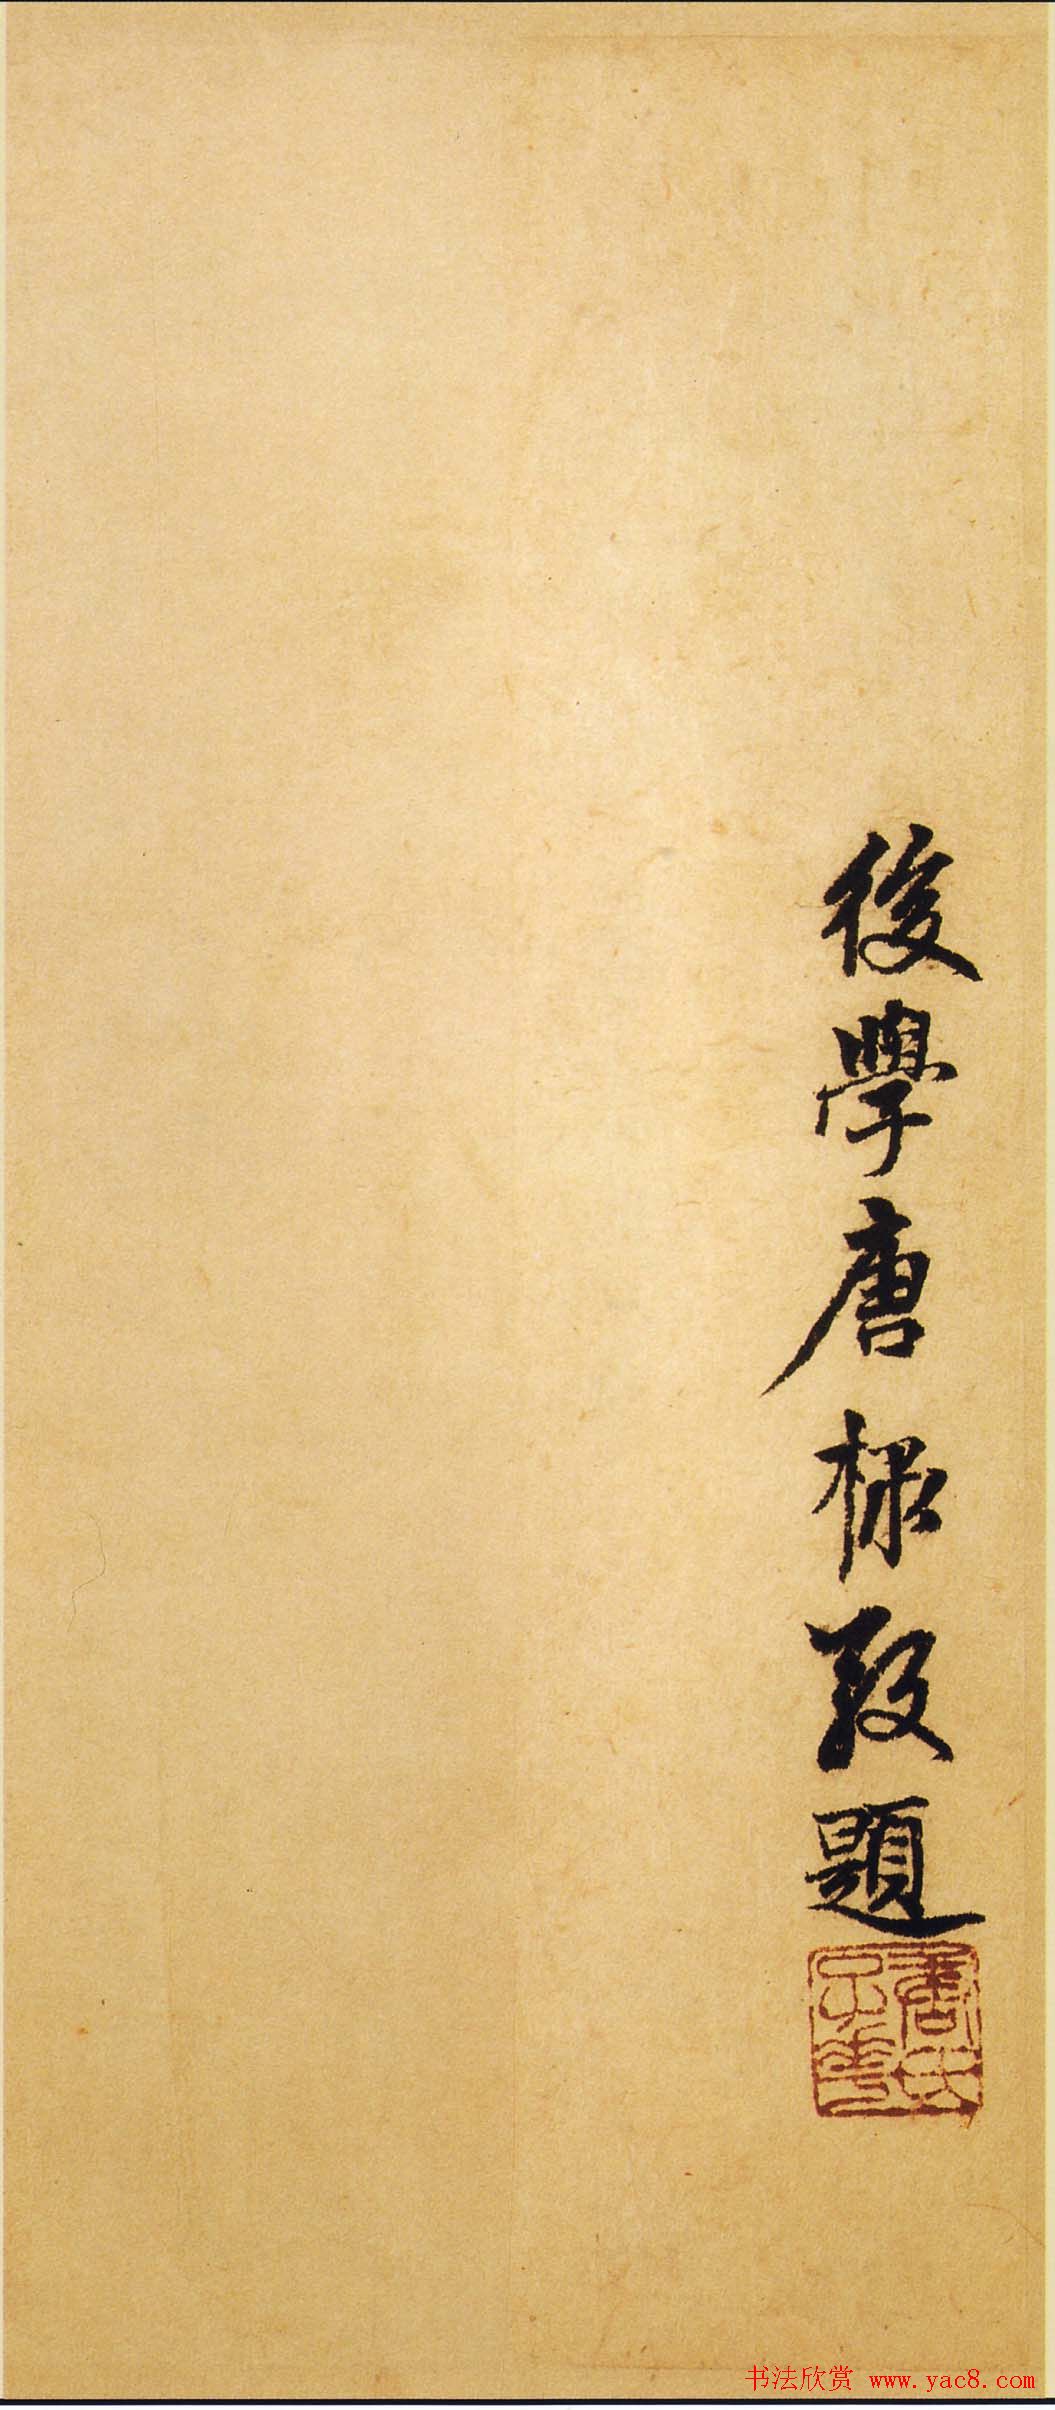 後學唐棣敬題
唐氏子華
书法欣赏 www.yac8.com